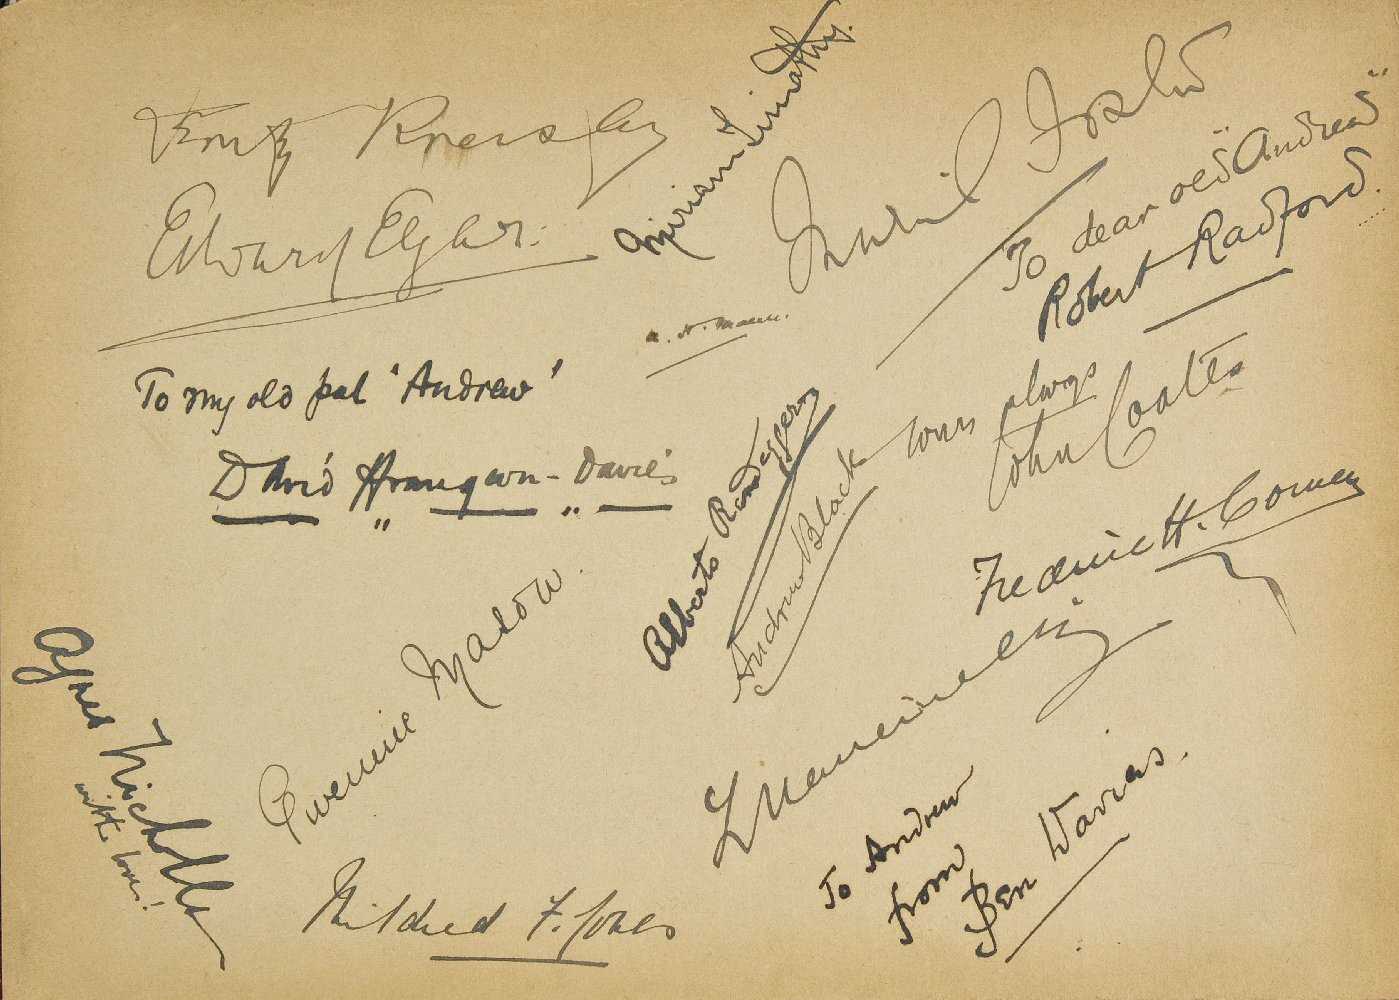 Fritz Kreisler
Edward Elgar.
Miriam Timothy.
Muriel Foster
To dear old "Andrew"
Robert Radford.
A. H. Mann.
To my old pal 'Andrew'
David Ffrangcon-Davies
Alberto Randegger
Andrew Black
yours always
John Coates
Frederic H. Cowen
Gwennie Mason.
Agnes Nicholls
with love!
Mildred F. Jones
To Andrew
from
Ben Davies.